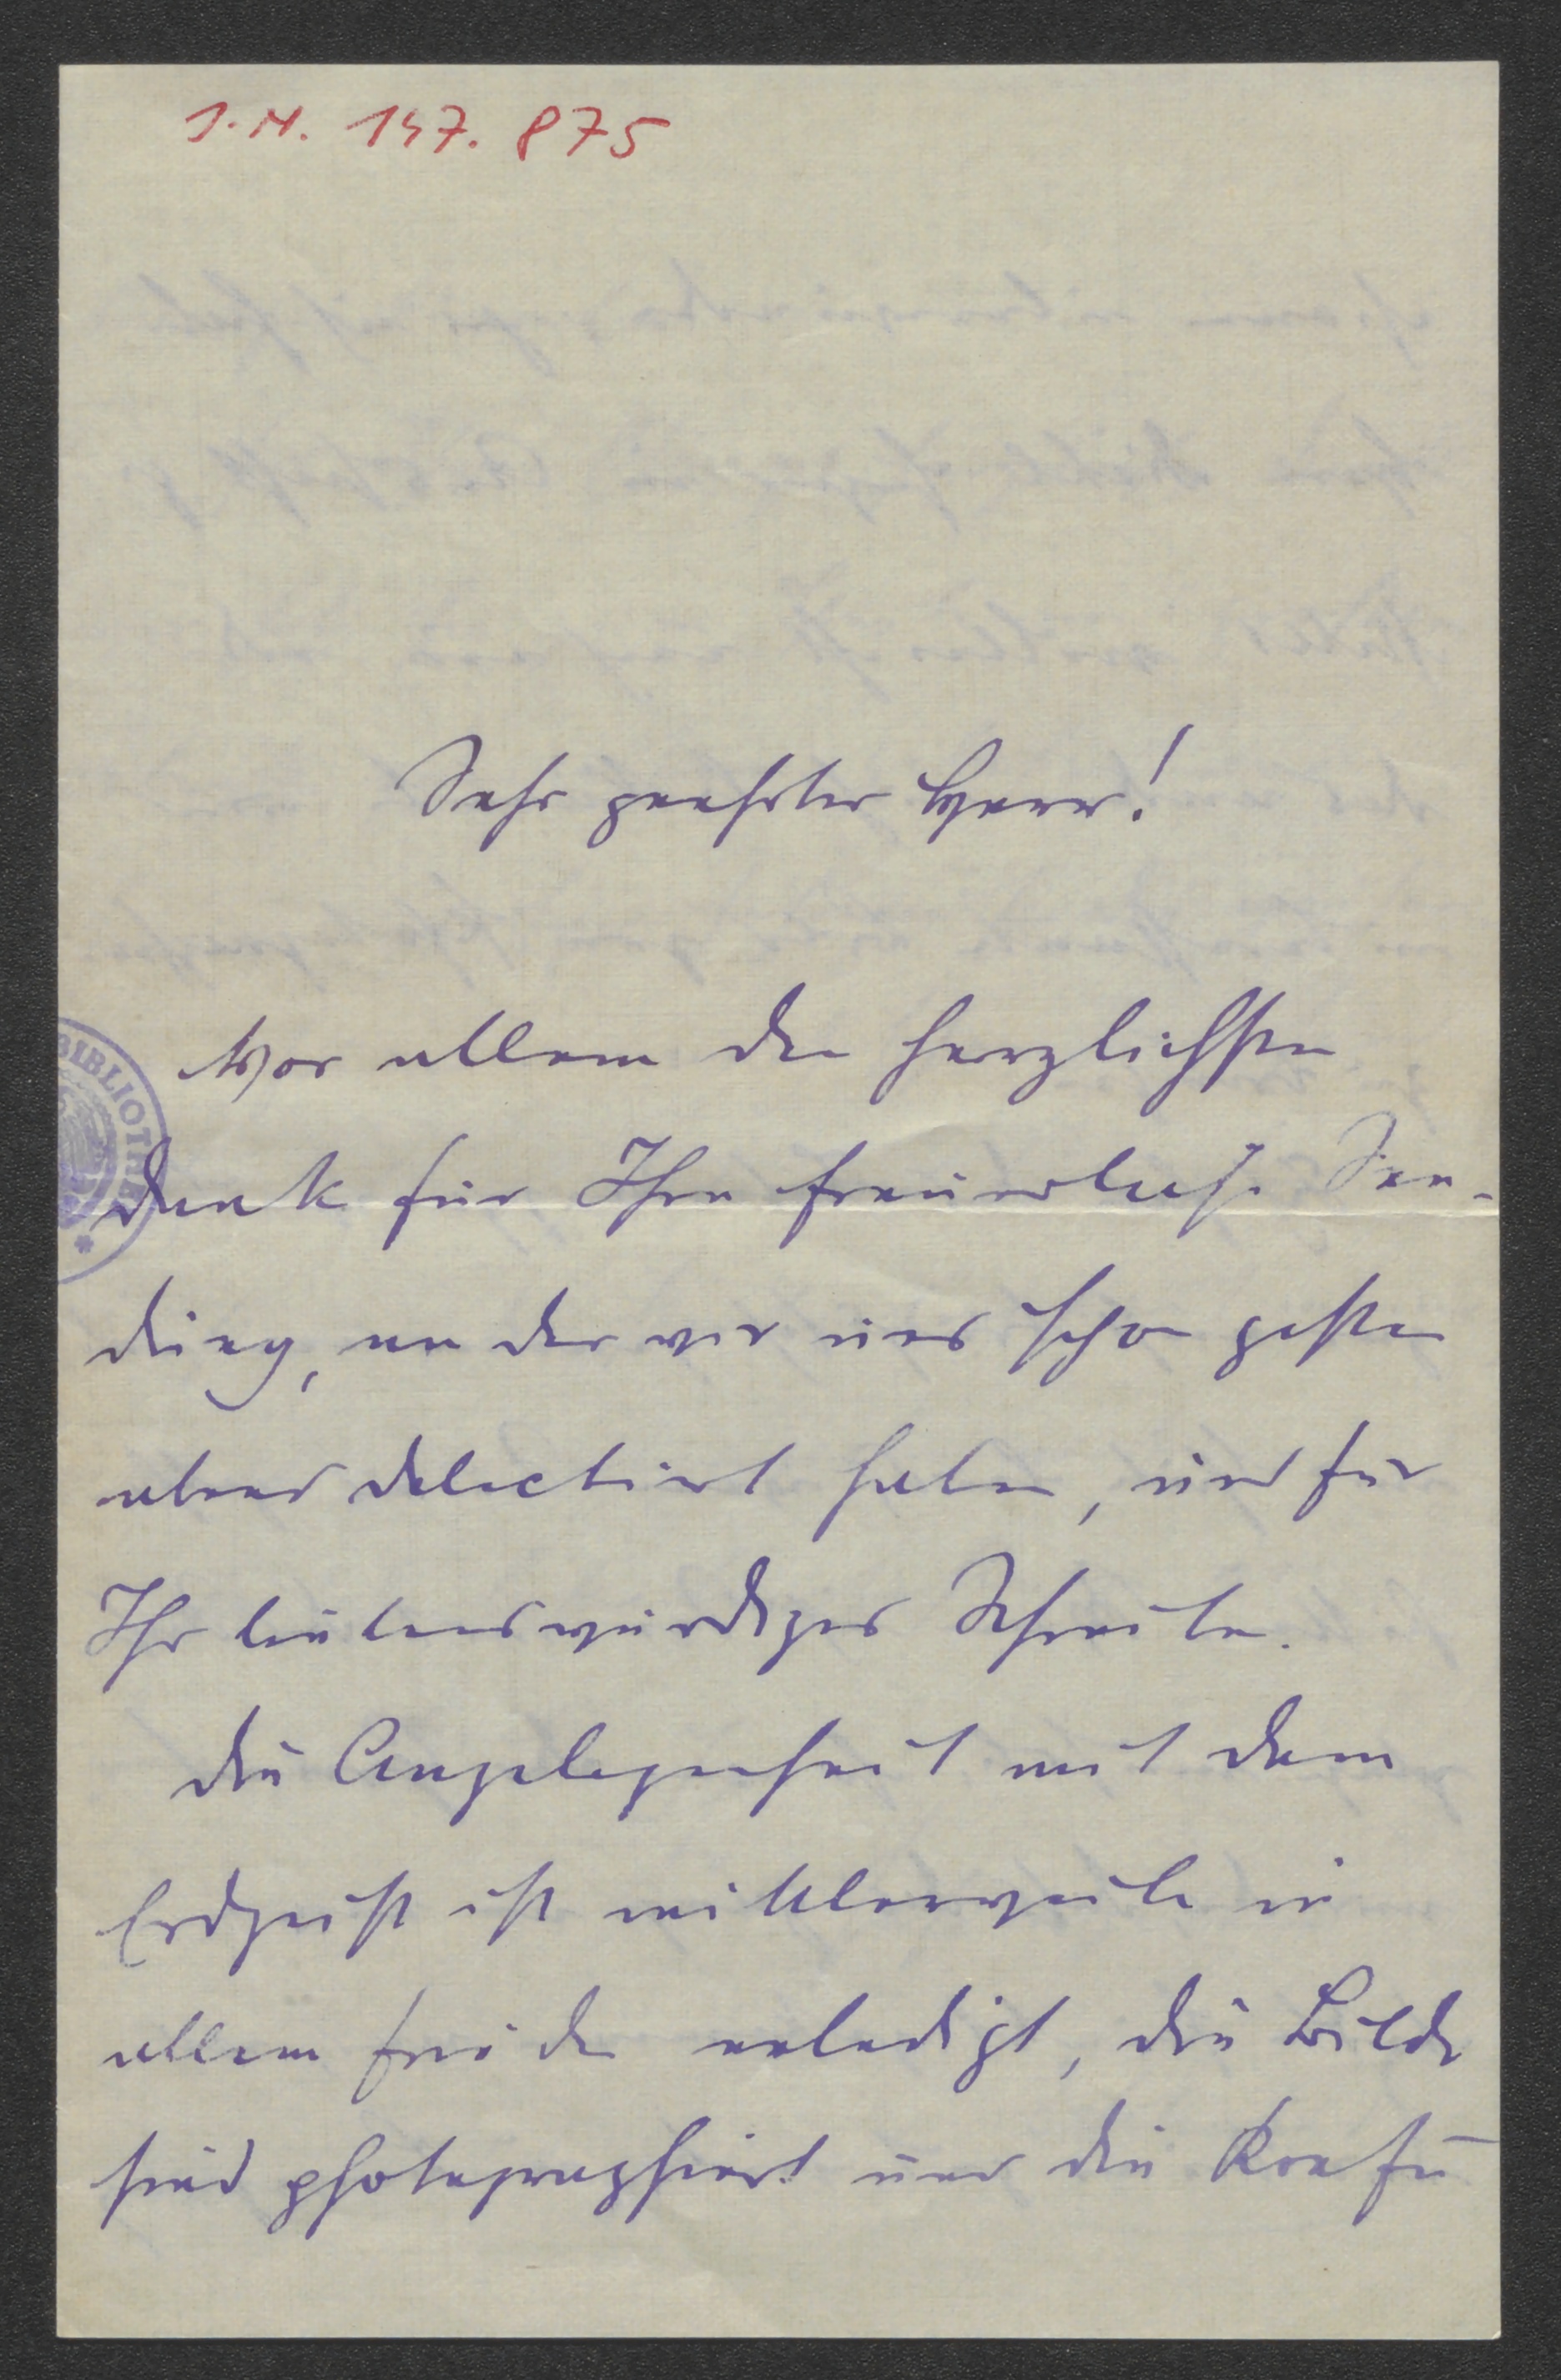 I.N. 147.875
Sehr geehrter Herr!
Vor allem den herzlichsten
Dank für Ihre Sen-
dung, an der wir uns schon gestern
abend delectirt haben, und für
Ihr liebenswürdiges Schreiben.
Die Angelegenheit mit dem
Erdgeist ist mittlerweile in
allem Frieden erledigt, die Bilder
sind photographiert und die
BIBLIOTHEK